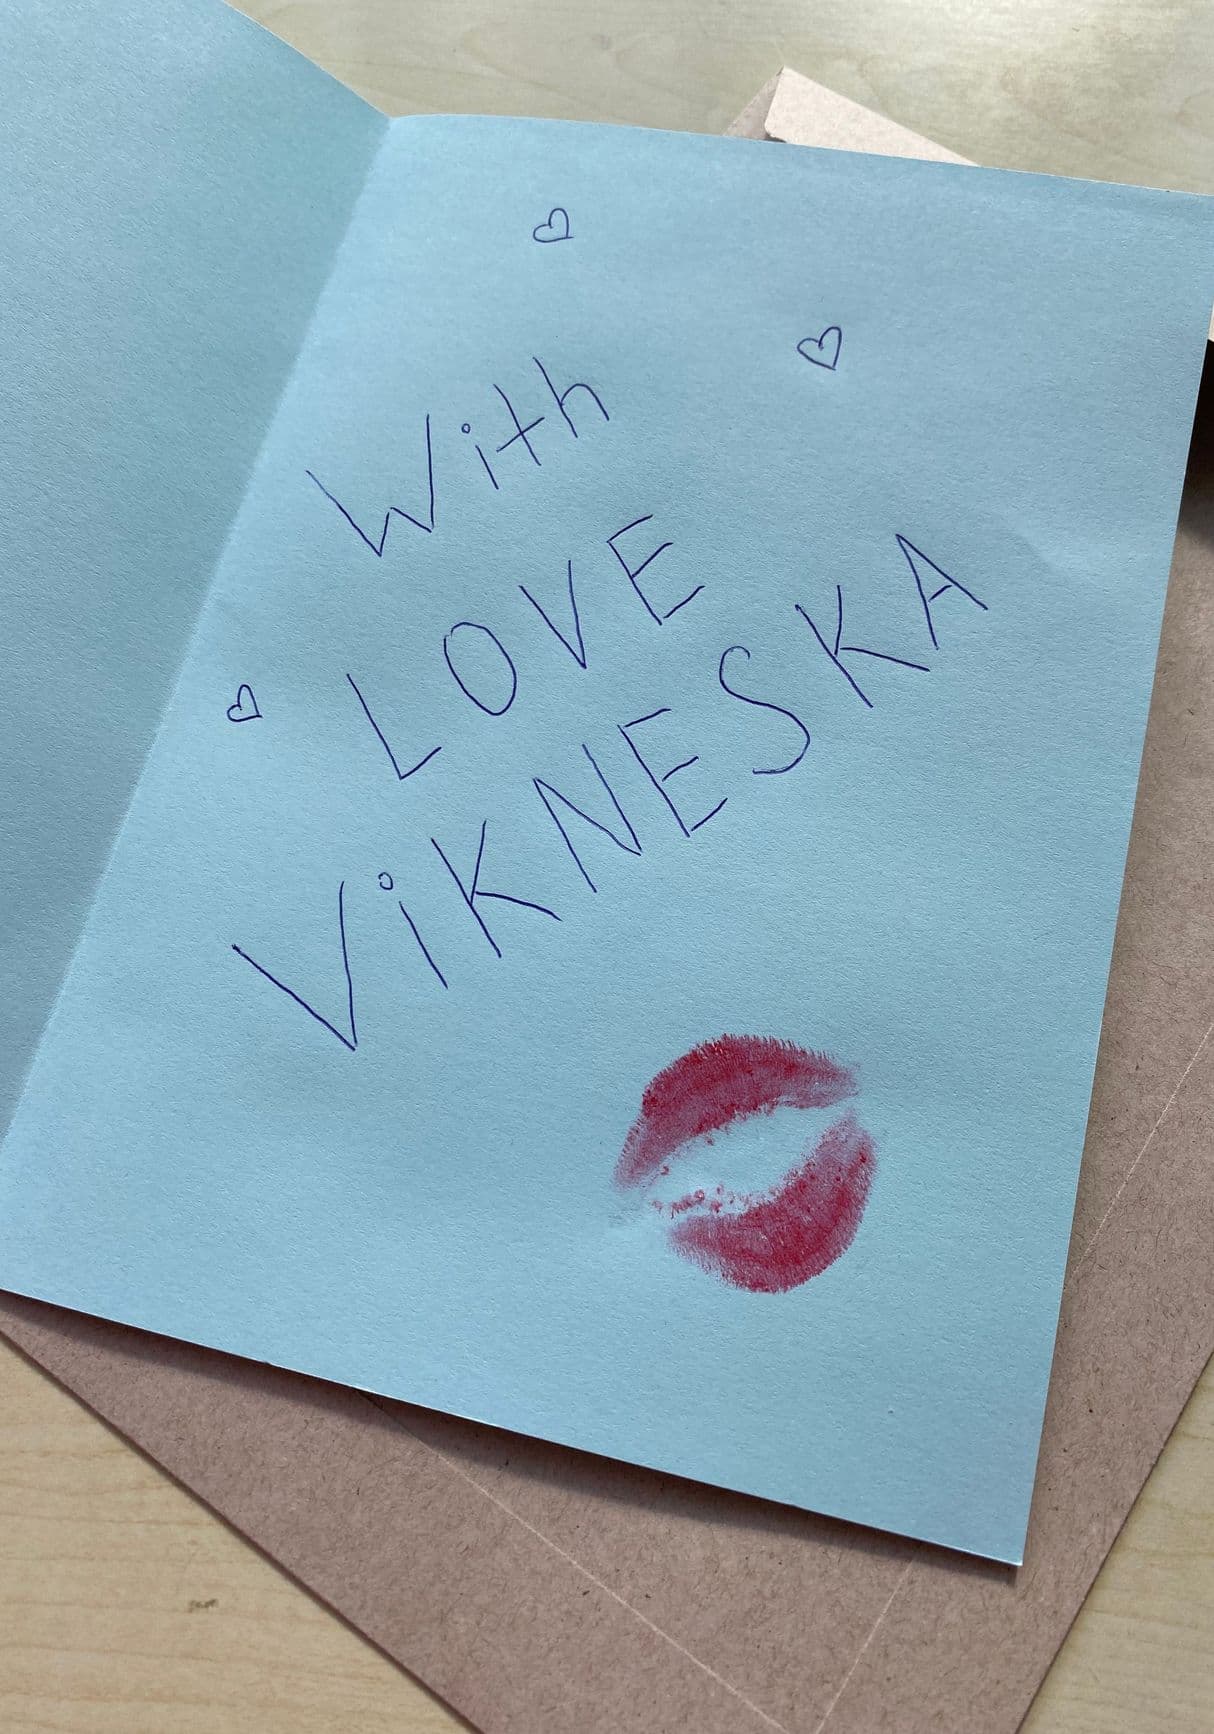 With
LOVE
ViKNESKA